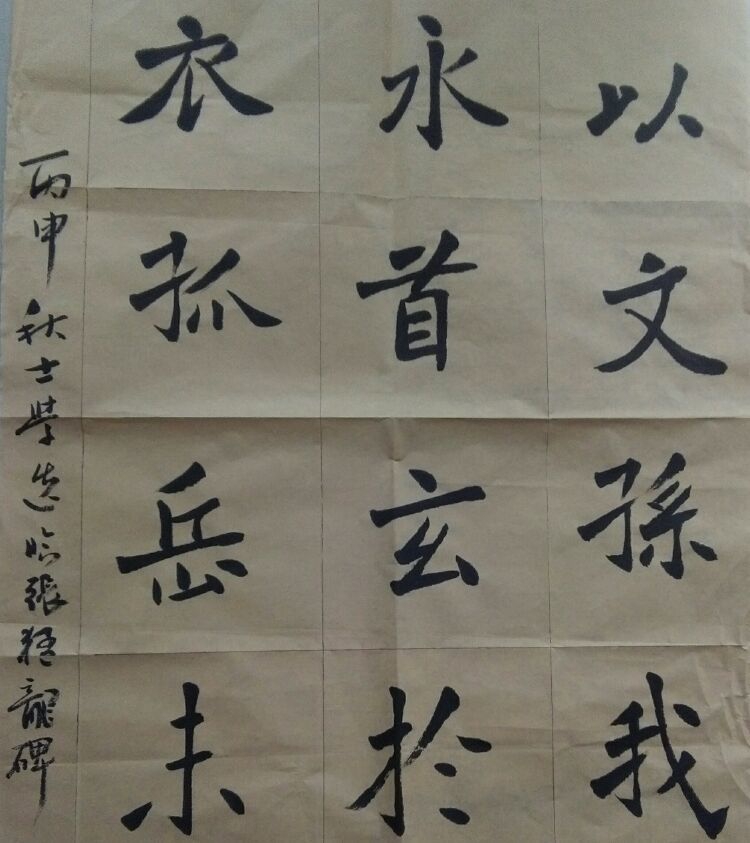 以文孫我
永首玄於
衣孤岳未
丙申秋士學選臨張猛龍碑